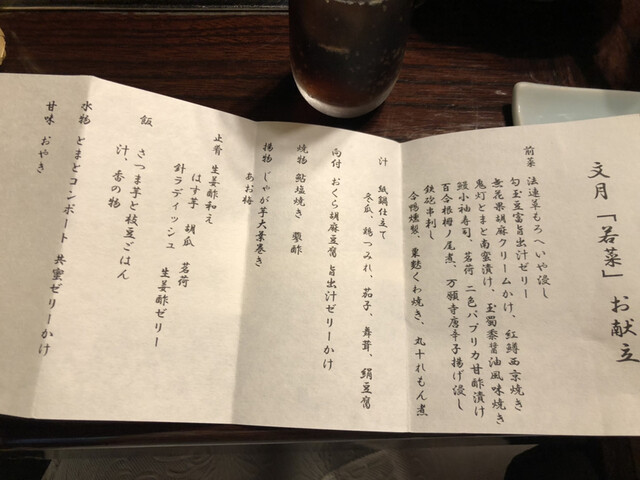 文月「若菜」お献立
前菜 法連草もろへいや浸し
勾玉豆富旨出汁ゼリー
無花果胡麻クリームかけ、紅鱒西京焼き
鬼灯とまと南蛮漬け、玉蜀黍醤油風味焼き
鰻小袖寿司、茗荷 二色パプリカ甘酢漬け
百合根梅ノ尾煮、万願寺唐辛子揚げ浸し
鉄砲串刺し
合鴨燻製、粟麩くわ焼き、丸十れもん煮
汁 紙鍋仕立て
冬瓜、鶏つみれ、茄子、舞茸、絹豆腐
向付 おくら胡麻豆腐 旨出汁ゼリーかけ
焼物 鮎塩焼き 蓼酢
揚物 じゃが芋大葉巻き
あお梅
止肴 生姜酢和え
はす芋 胡瓜 茗荷
針ラディッシュ 生姜酢ゼリー
飯 さつま芋と枝豆ごはん
汁、香の物
水物 とまとコンポート 共蜜ゼリーかけ
甘味 おやき